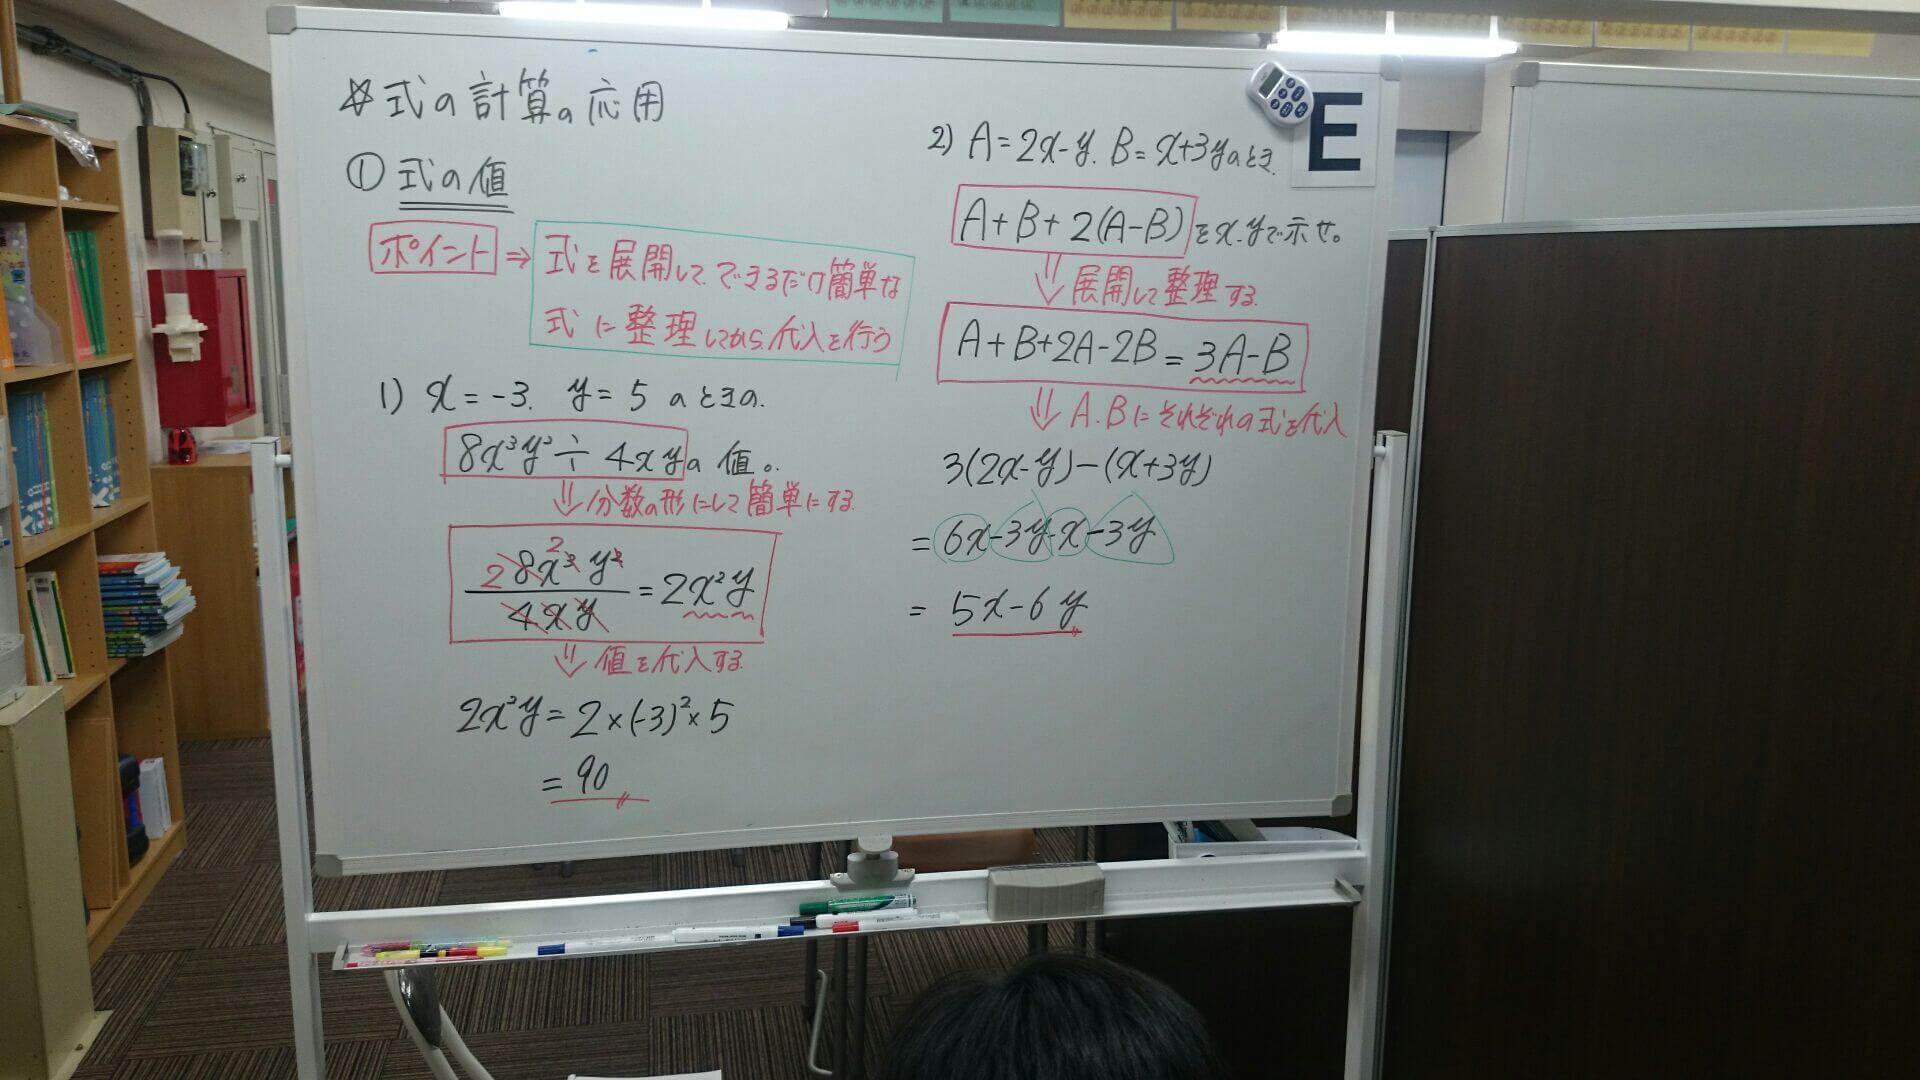 ☆式の計算の応用
① 式の値
ポイント ⇒ 式を展開して、できるだけ簡単な
式に整理してから代入を行う
1) x = -3. y = 5 のときの.
8x³y² ÷ 4xyの値。
⇓ 分数の形にして簡単にする.
2 8x³ 2 y² / 4xy = 2x²y
⇓ 値を代入する.
2x²y = 2×(-3)²×5
= 90
2) A=2x-y. B=x+3yのとき.
A+B+2(A-B)をx.yで示せ。
⇓ 展開して整理する.
A+B+2A-2B = 3A-B
⇓ A.Bにそれぞれの式を代入
3(2x-y)-(x+3y)
= 6x-3y-x-3y
= 5x-6y
E